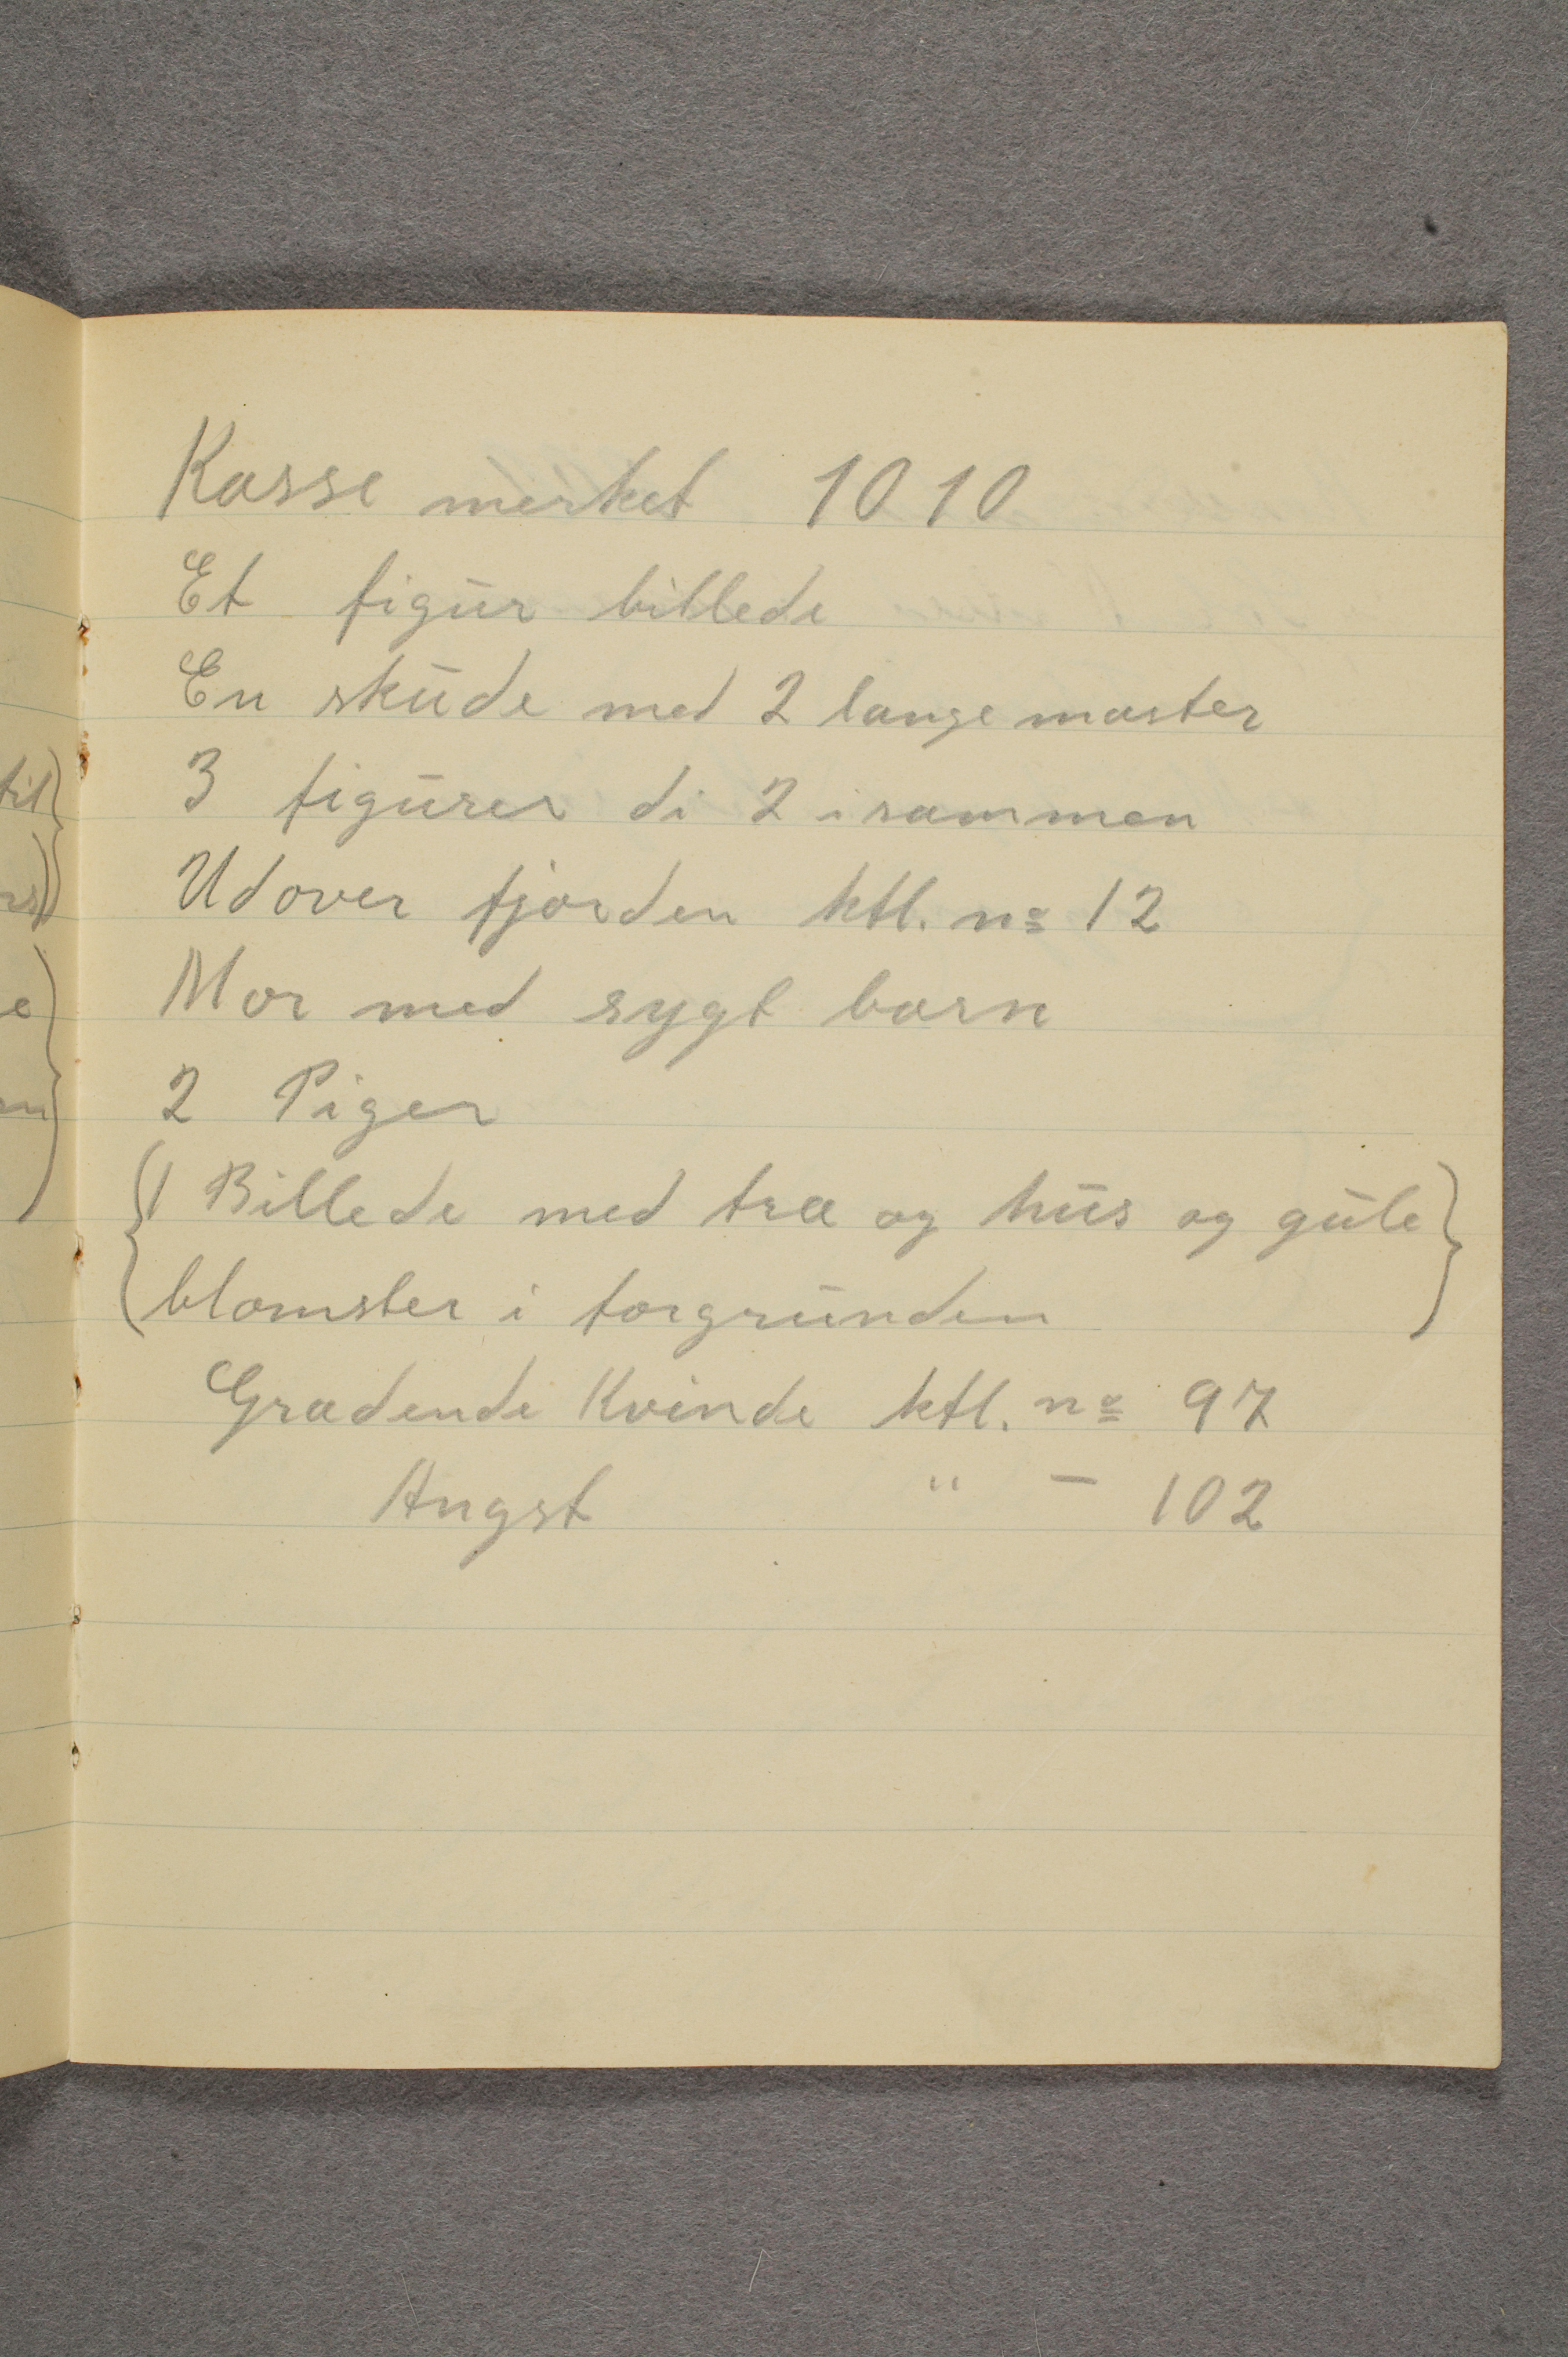 Kasse merket 1010
Et figūr billede
En skūde med 2 lange master
3 figūrer di 2 isammen
Udover fjorden ktl. no 12
Mor med sygt barn
2 Piger
{1 Billede med træ og hūs og gūle}
{blomster i forgrūnden}
Grædende Kvinde ktl. no 97
Angst " – 102
til}
e